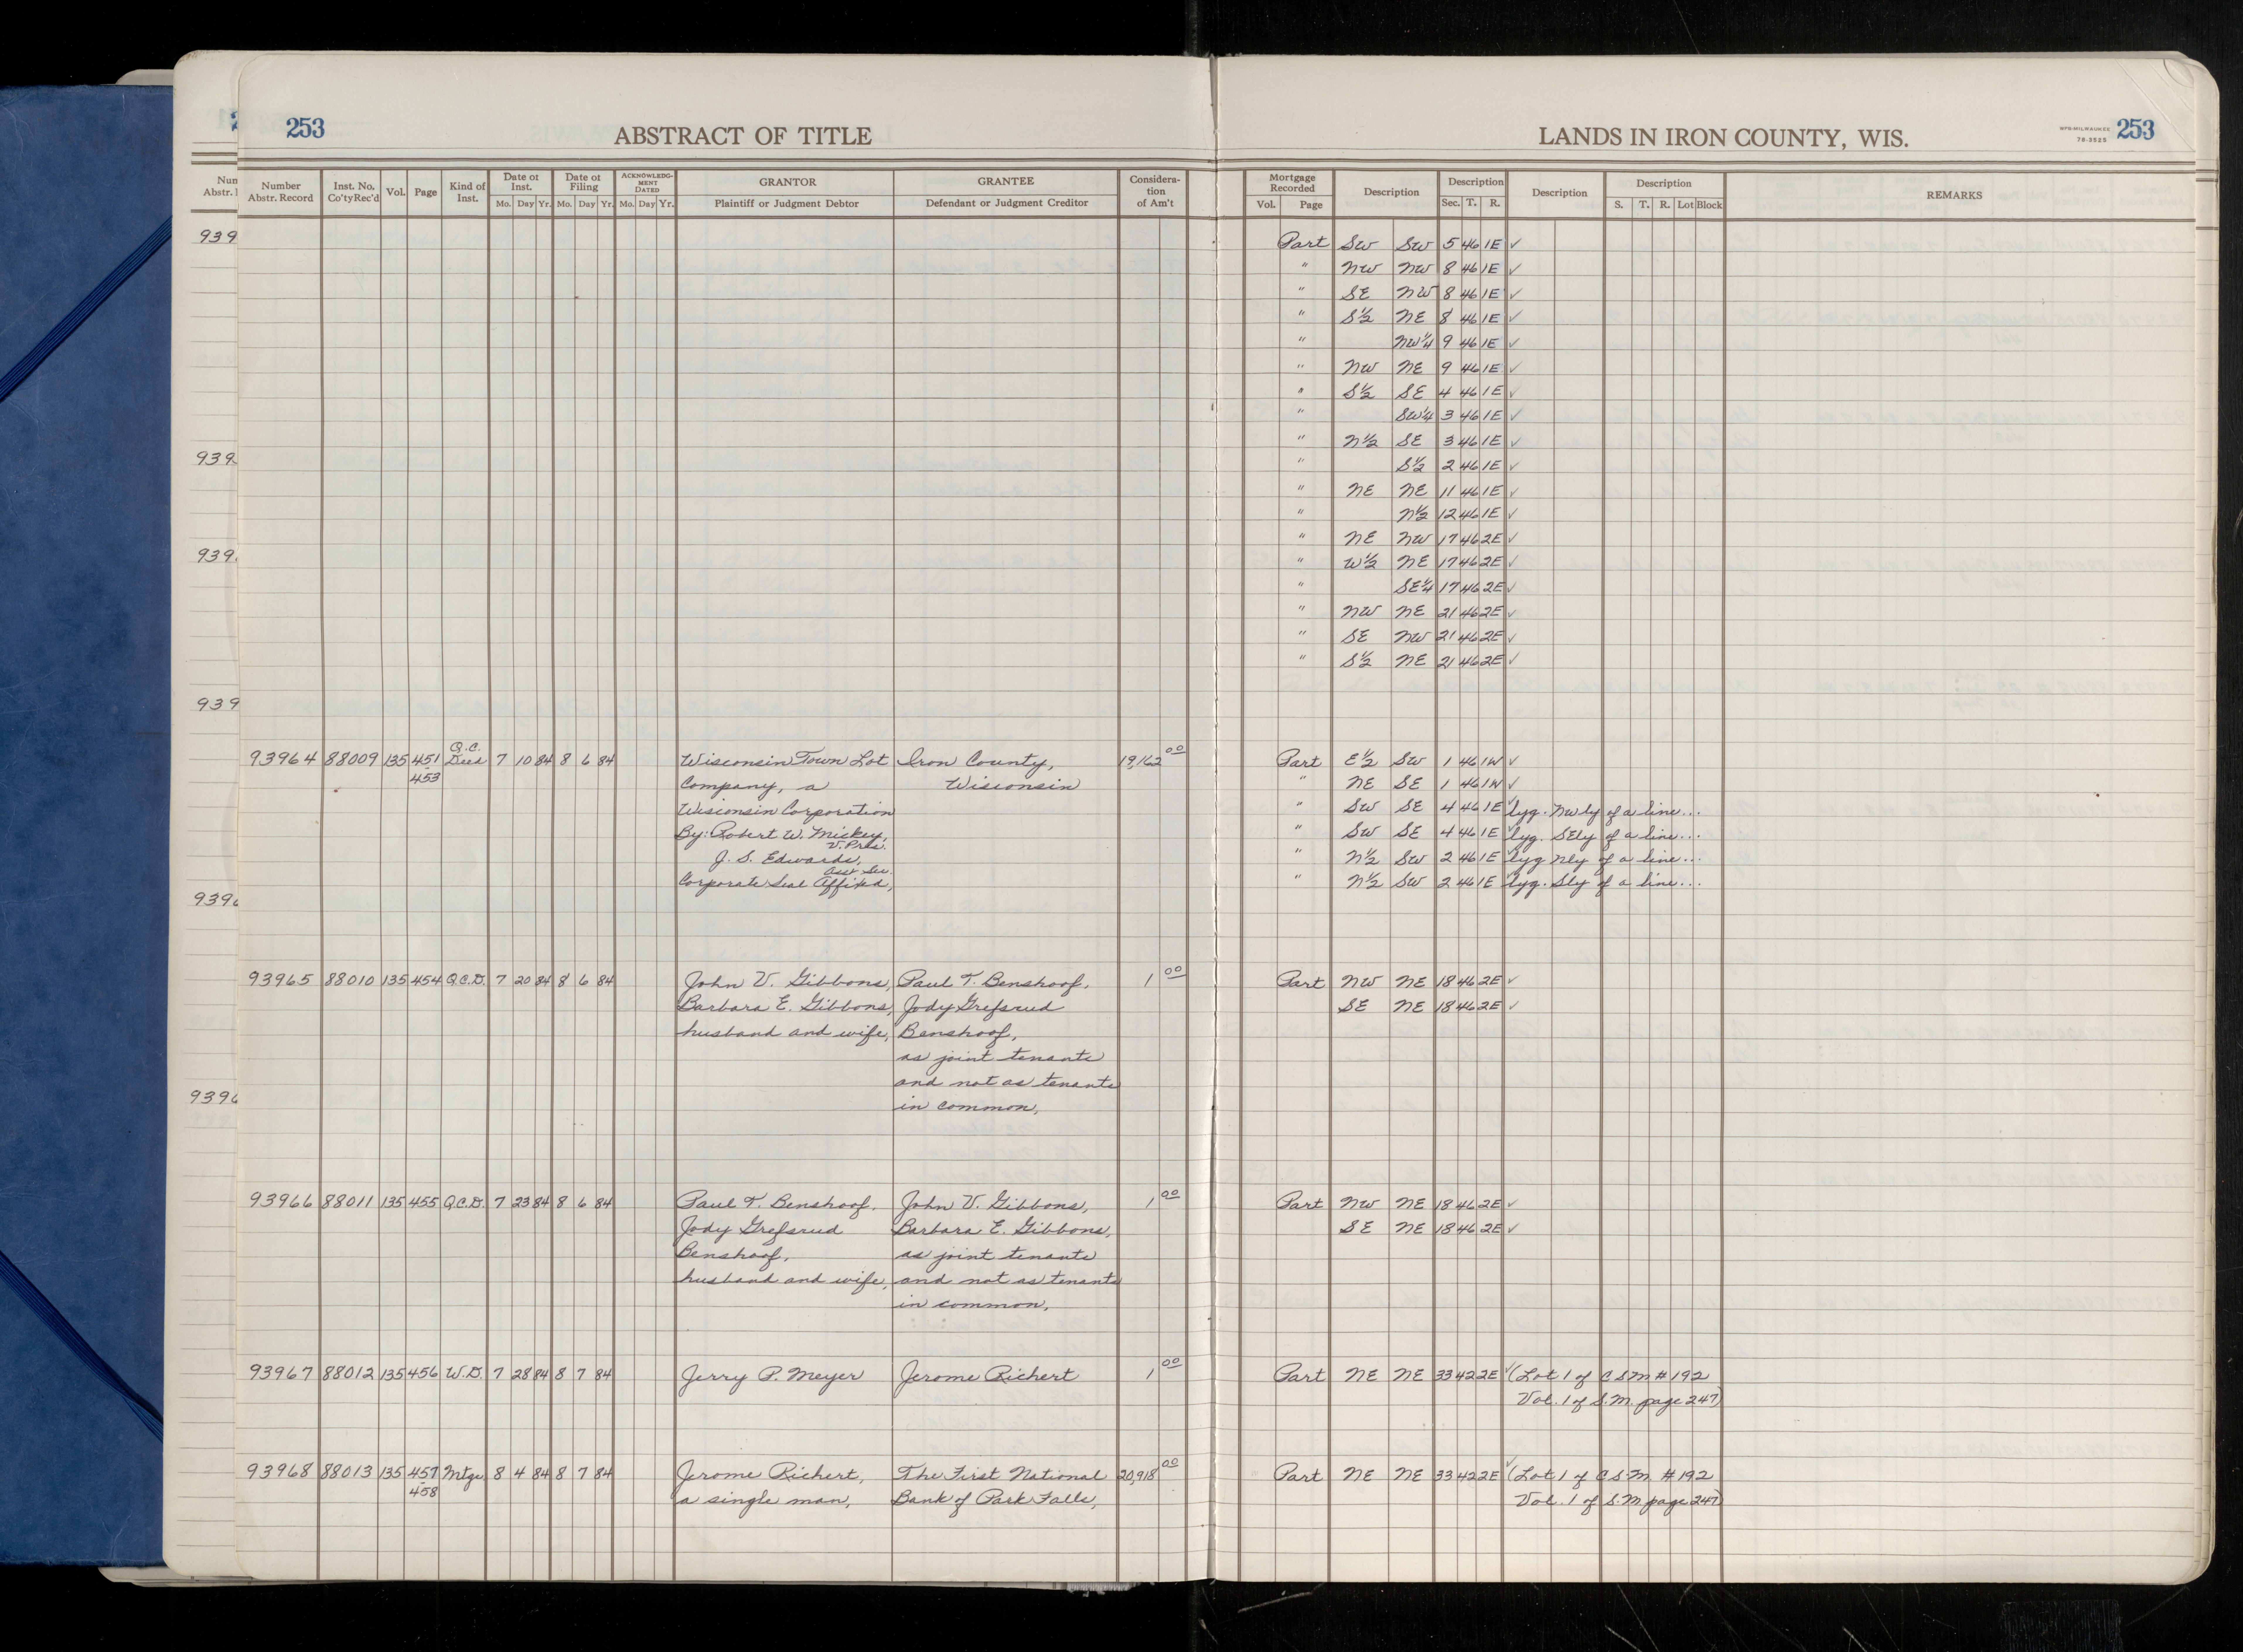 253 ABSTRACT OF TITLE LANDS IN IRON COUNTY, WIS. WPS-MILWAUKEE 78-3525 253
Number Abstr. Record Inst. No. Co'ty Rec'd Vol. Page Kind of Inst. Date of Inst. Date of Filing ACKNOWLEDGMENT DATED GRANTOR GRANTEE Consideration of Am't Mortgage Recorded Description Description Description Description REMARKS
Mo. Day Yr. Mo. Day Yr. Mo. Day Yr. Plaintiff or Judgment Debtor Defendant or Judgment Creditor Vol. Page Sec. T. R. S. T. R. Lot Block
Part SW SW 5 46 1E ✓
" NW NW 8 46 1E ✓
" SE NW 8 46 1E ✓
" S½ NE 8 46 1E ✓
" NW¼ 9 46 1E ✓
" NW NE 9 46 1E ✓
" S½ SE 4 46 1E ✓
" SW¼ 3 46 1E ✓
" N½ SE 3 46 1E ✓
" S½ 2 46 1E ✓
" NE NE 11 46 1E ✓
" N½ 12 46 1E ✓
" NE NW 17 46 2E ✓
" W½ NE 17 46 2E ✓
" SE¼ 17 46 2E ✓
" NW NE 21 46 2E ✓
" SE NW 21 46 2E ✓
" S½ NE 21 46 2E ✓
93964 88009 135 451-453 Q.C. Deed 7 10 84 8 6 84 Wisconsin Town Lot Iron County, 19,162 00 Part E½ SW 1 46 1W ✓
Company, a Wisconsin " NE SE 1 46 1W ✓
Wisconsin Corporation " SW SE 4 46 1E ✓ lyg. NWly of a line...
By: Robert W. Mickey, V. Pres. " SW SE 4 46 1E ✓ lyg. SEly of a line...
J. S. Edwards, Asst Sec. " N½ SW 2 46 1E ✓ lyg Nly of a line...
Corporate Seal Affixed, " N½ SW 2 46 1E ✓ lyg. Sly of a line...
93965 88010 135 454 Q.C.D. 7 20 84 8 6 84 John V. Gibbons, Paul T. Benshoof, 1 00 Part NW NE 18 46 2E ✓
Barbara E. Gibbons, Jody Grefsrud SE NE 18 46 2E ✓
husband and wife, Benshoof,
as joint tenants
and not as tenants
in common,
93966 88011 135 455 Q.C.D. 7 23 84 8 6 84 Paul T. Benshoof, John V. Gibbons, 1 00 Part NW NE 18 46 2E ✓
Jody Grefsrud Barbara E. Gibbons, SE NE 18 46 2E ✓
Benshoof, as joint tenants
husband and wife, and not as tenants
in common,
93967 88012 135 456 W.D. 7 28 84 8 7 84 Jerry P. Meyer Jerome Richert 1 00 Part NE NE 33 42 2E ✓ (Lot 1 of CSM # 192
Vol. 1 of S.M. page 247)
93968 88013 135 457-458 Mtge 8 4 84 8 7 84 Jerome Richert, The First National 20,918 00 Part NE NE 33 42 2E ✓ (Lot 1 of C.S.M. # 192
a single man, Bank of Park Falls, Vol. 1 of S.M page 247)